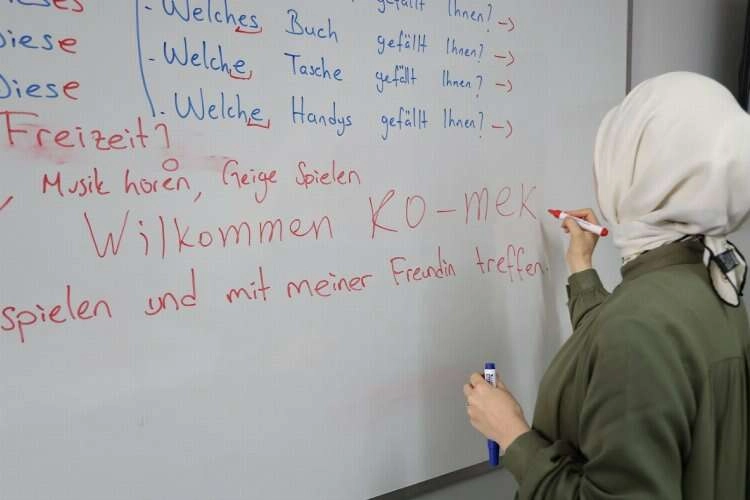 Welches Buch gefällt Ihnen? →
Diese - Welche Tasche gefällt Ihnen? →
Diese - Welche Handys gefällt Ihnen? →
Freizeit?
Musik hören, Geige Spielen
Wilkommen KO-mek
spielen und mit meiner Freundin treffen.